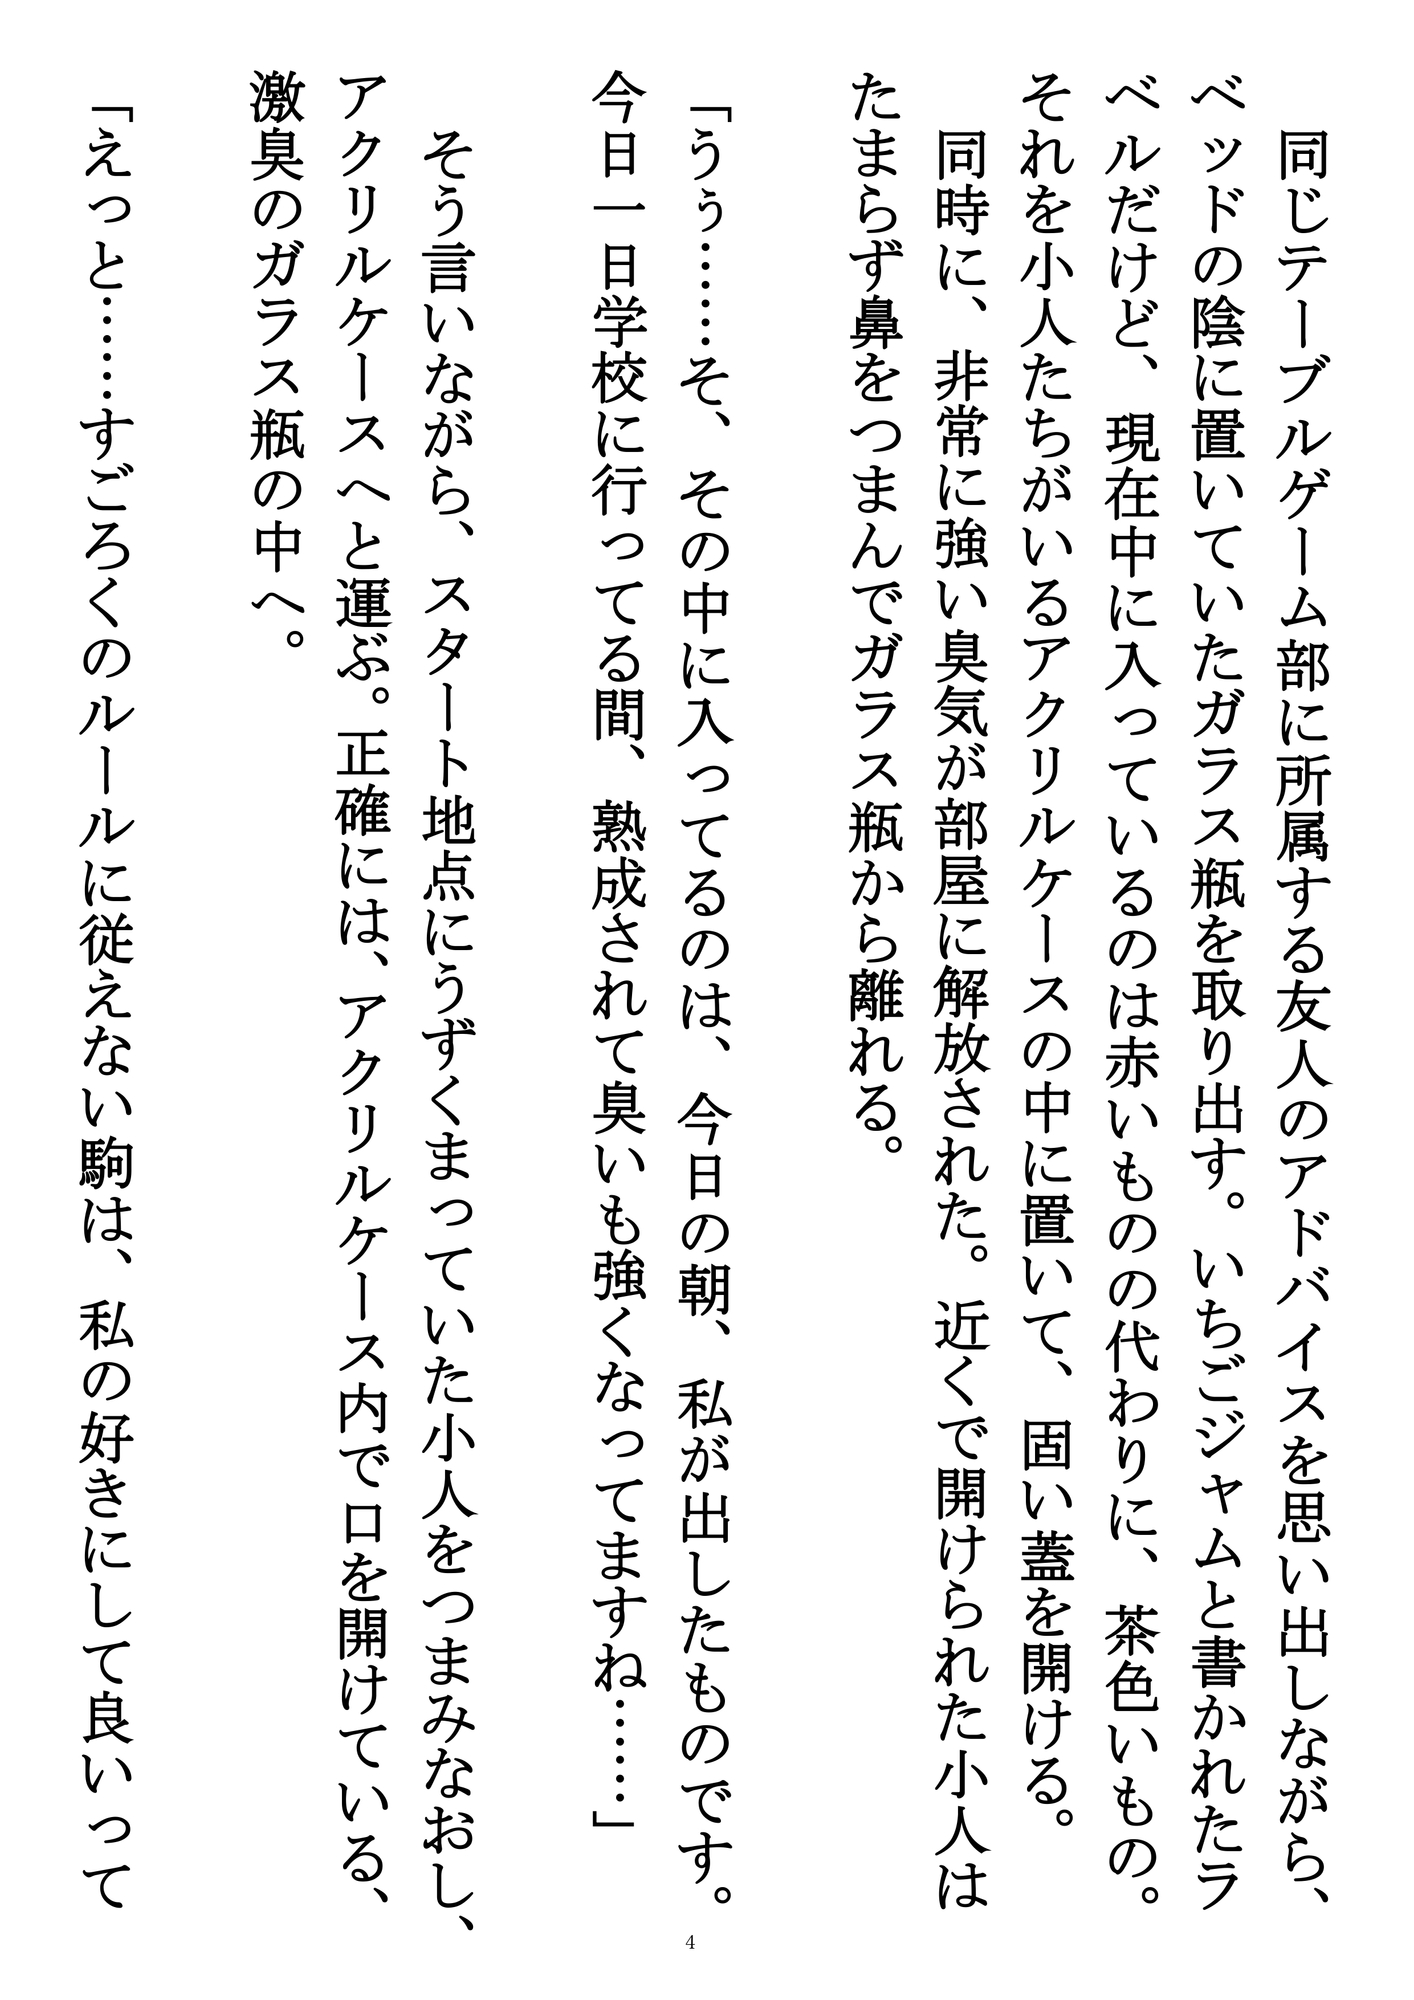 同じテーブルゲーム部に所属する友人のアドバイスを思い出しながら、
ベッドの陰に置いていたガラス瓶を取り出す。いちごジャムと書かれたラ
ベルだけど、現在中に入っているのは赤いものの代わりに、茶色いもの。
それを小人たちがいるアクリルケースの中に置いて、固い蓋を開ける。
　同時に、非常に強い臭気が部屋に解放された。近くで開けられた小人は
たまらず鼻をつまんでガラス瓶から離れる。
「うぅ……そ、その中に入ってるのは、今日の朝、私が出したものです。
今日一日学校に行ってる間、熟成されて臭いも強くなってますね……」
　そう言いながら、スタート地点にうずくまっていた小人をつまみなおし、
アクリルケースへと運ぶ。正確には、アクリルケース内で口を開けている、
激臭のガラス瓶の中へ。
「えっと……すごろくのルールに従えない駒は、私の好きにして良いって
4